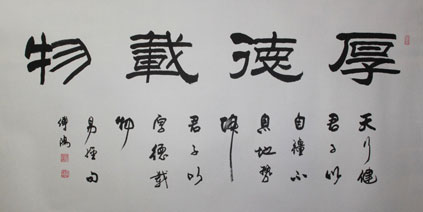 厚德載物
天行健
君子以
自強不
息地势
坤
君子以
厚德载
物
易经句